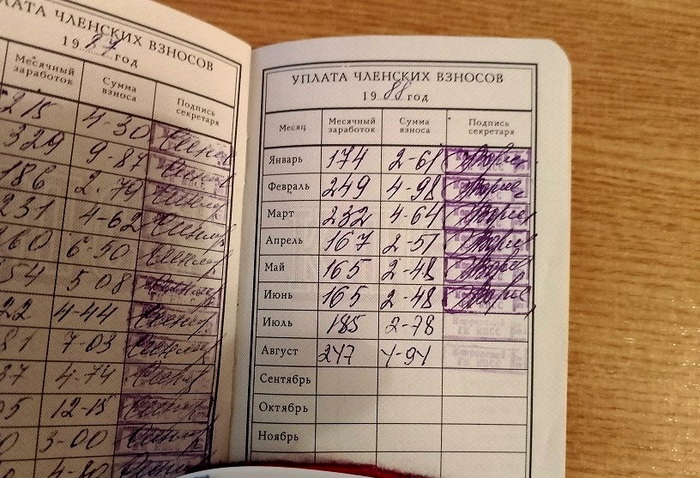 УПЛАТА ЧЛЕНСКИХ ВЗНОСОВ
19 87 год
Месячный заработок
Сумма взноса
Подпись секретаря
215 4-30
329 9-87
186 2-79
231 4-62
260 6-50
54 5 08
22 4-44
81 7-03
37 4-74
12-15
3-00
УПЛАТА ЧЛЕНСКИХ ВЗНОСОВ
19 88 год
Месяц
Месячный заработок
Сумма взноса
Подпись секретаря
Январь 174 2-61
Февраль 249 4-98
Март 232 4-64
Апрель 167 2-51
Май 165 2-48
Июнь 165 2-48
Июль 185 2-78
Август 247 4-94
Сентябрь
Октябрь
Ноябрь